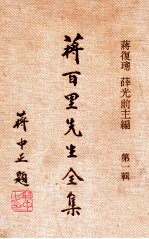 蔣復璁 薛光前主編
第一輯
蔣百里先生全集
蔣中正題